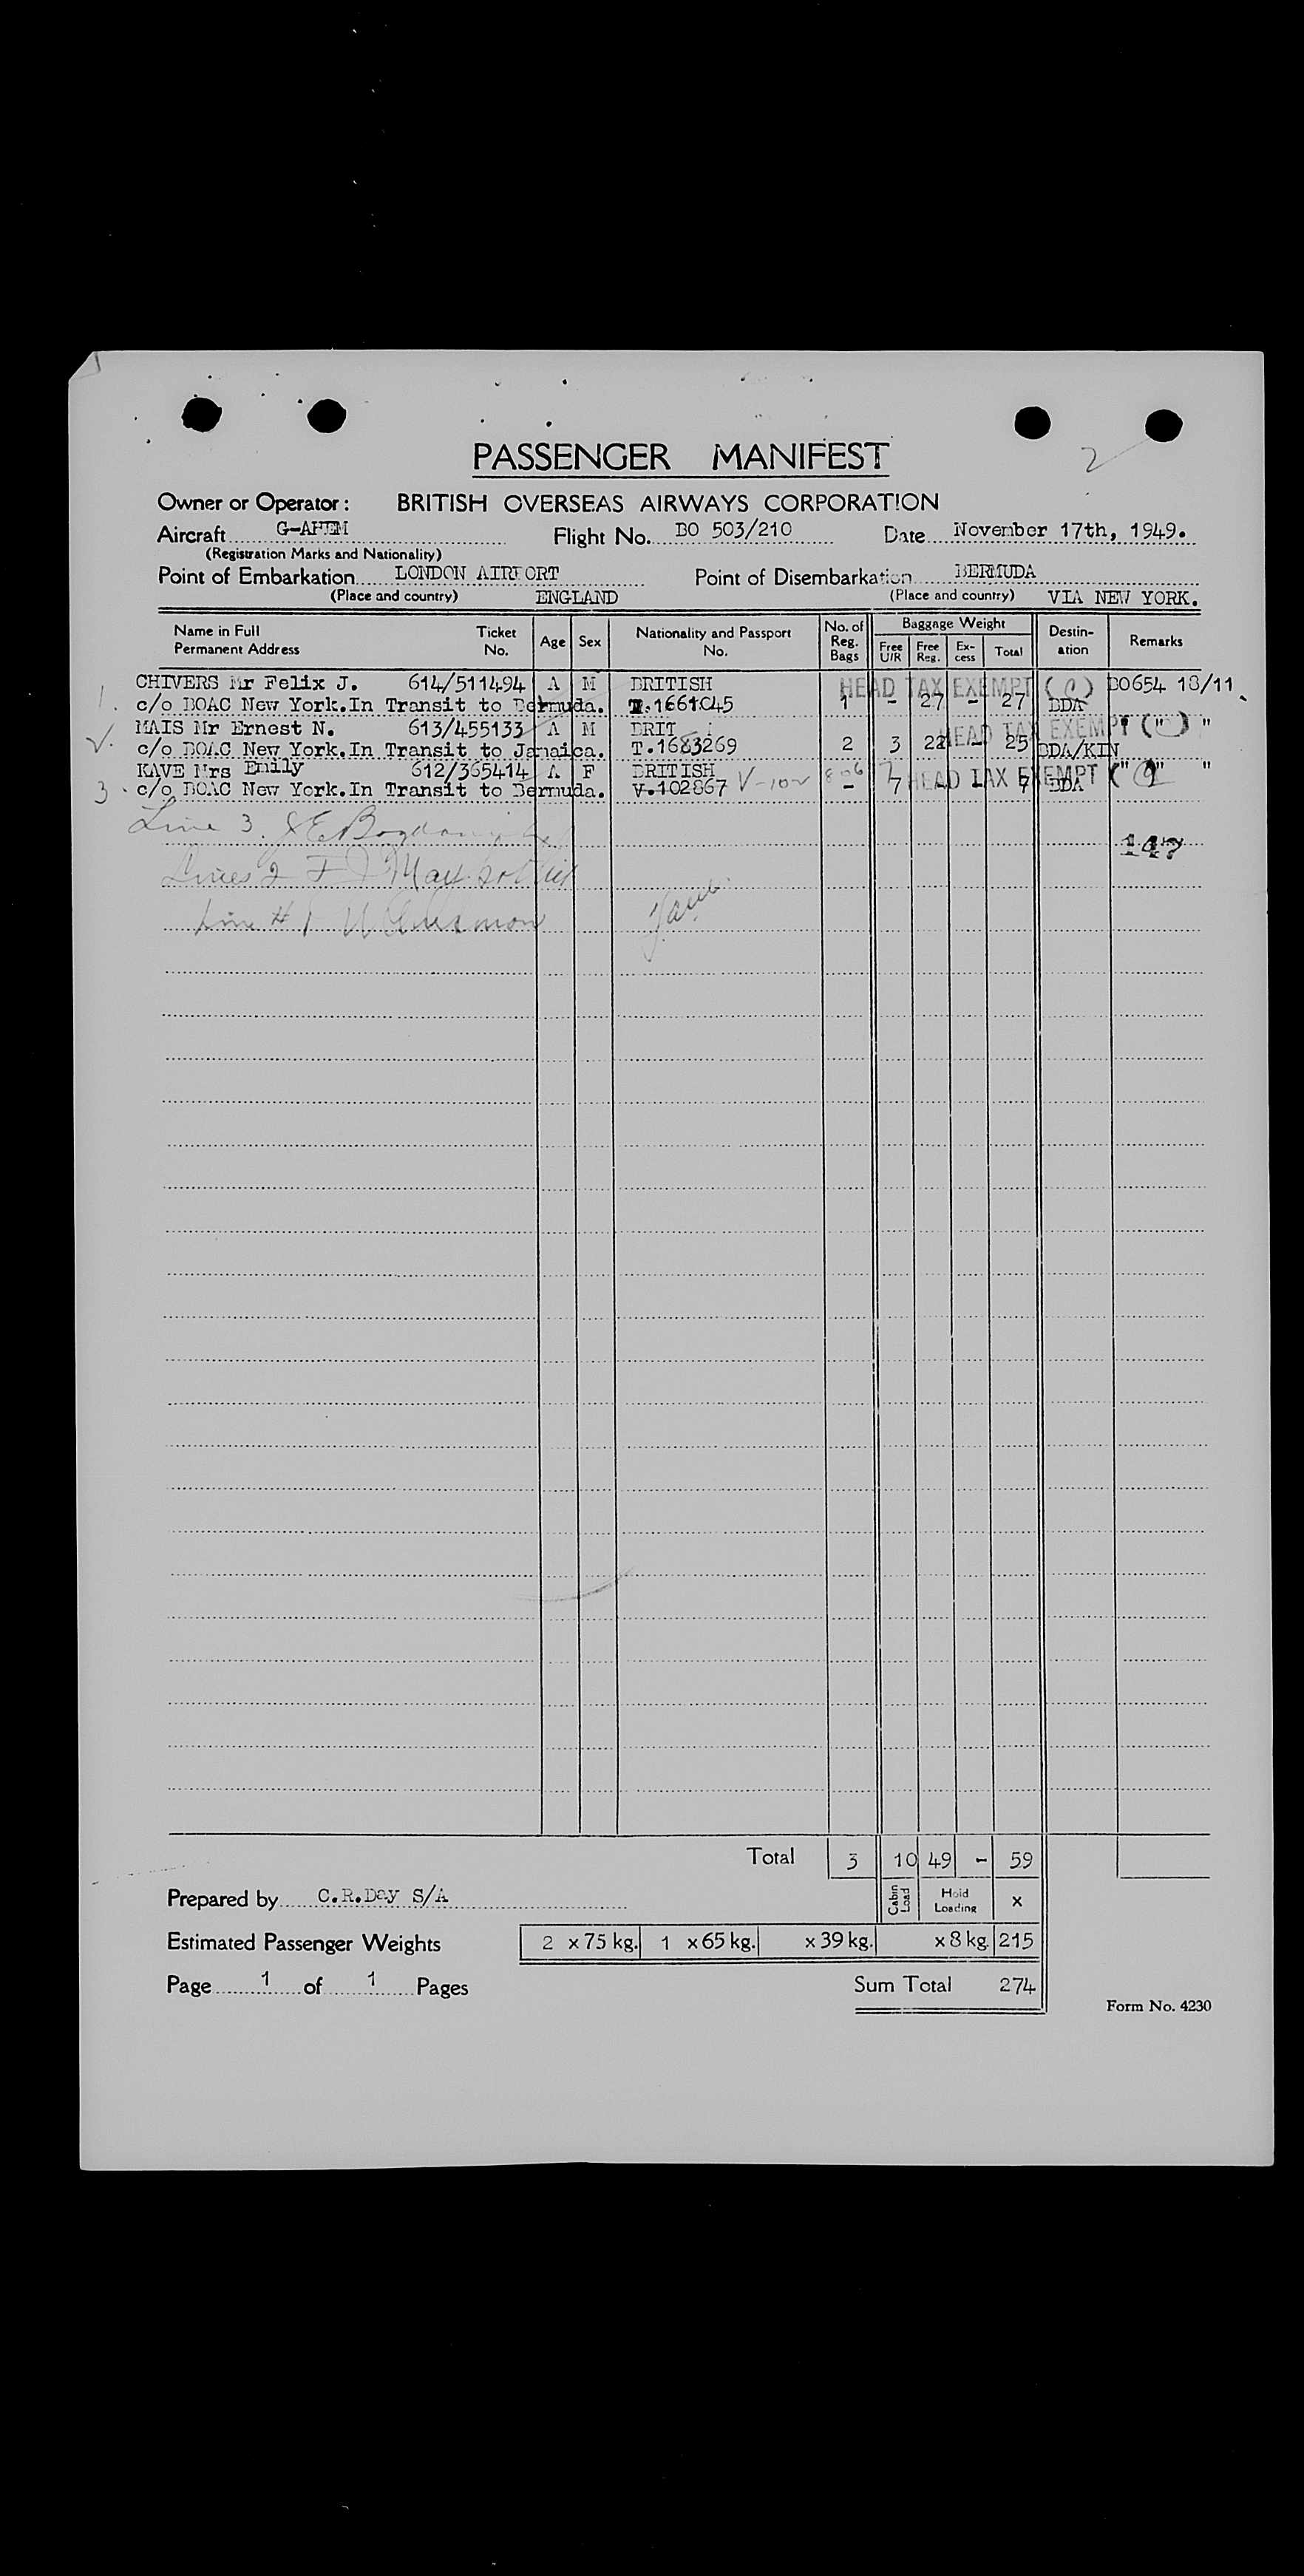 2
PASSENGER MANIFEST
Owner or Operator: BRITISH OVERSEAS AIRWAYS CORPORATION
Aircraft G-AHEM Flight No. BO 503/210 Date November 17th, 1949.
(Registration Marks and Nationality)
Point of Embarkation LONDON AIRPORT Point of Disembarkation BERMUDA
(Place and country) ENGLAND (Place and country) VIA NEW YORK.
Name in Full Permanent Address Ticket No. Age Sex Nationality and Passport No. No. of Reg. Bags Baggage Weight Free U/R Free Reg. Ex-cess Total Destin-ation Remarks
1. CHIVERS Mr Felix J. 614/511494 A M BRITISH HEAD TAX EXEMPT ( ) BO654 18/11
c/o BOAC New York. In Transit to Bermuda. T.1661045 1 - 27 - 27 BDA
MAIS Mr Ernest N. 613/455133 A M BRIT HEAD TAX EXEMPT " " "
c/o BOAC New York. In Transit to Jamaica. T.1683269 2 3 22 - 25 BDA/KIN
KAVE Mrs Emily 612/365414 A F BRITISH HEAD TAX EXEMPT " " "
3. c/o BOAC New York. In Transit to Bermuda. V.102867 - 7 - - 7 BDA
Line 3.
147
Lines 2
Line # 1
Total 3 10 49 - 59
Prepared by C.R.Day S/A Cabin Load Hold Loading x
Estimated Passenger Weights 2 x 75 kg. 1 x 65 kg. x 39 kg. x 8 kg. 215
Page 1 of 1 Pages Sum Total 274
Form No. 4230